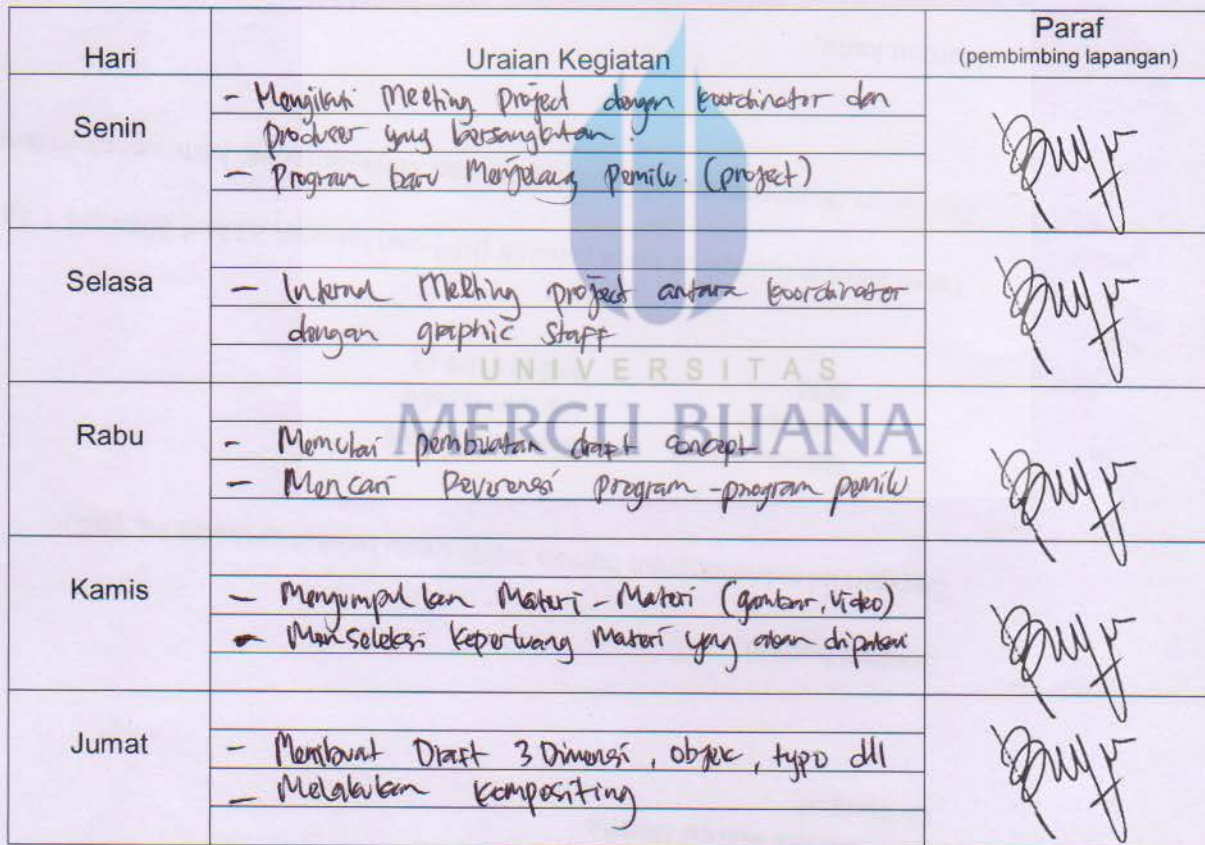 Hari Uraian Kegiatan Paraf
(pembimbing lapangan)
Senin
- Mengikuti Meeting project dengan koordinator dan
producer yang bersangkutan.
- Program baru Menjelang Pemilu. (project)
Selasa
- Internal Meeting project antara koordinator
dengan graphic staff
UNIVERSITAS
MERCU BUANA
Rabu
- Memulai pembuatan draft concept
- Mencari Reverensi program-program pemilu
Kamis
- Mengumpulkan Materi-Materi (gambar, video)
- Menseleksi Keperluang Materi yang akan dipakai
Jumat
- Membuat Draft 3 Dimensi, objek, typo dll
- Melakukan kompositing